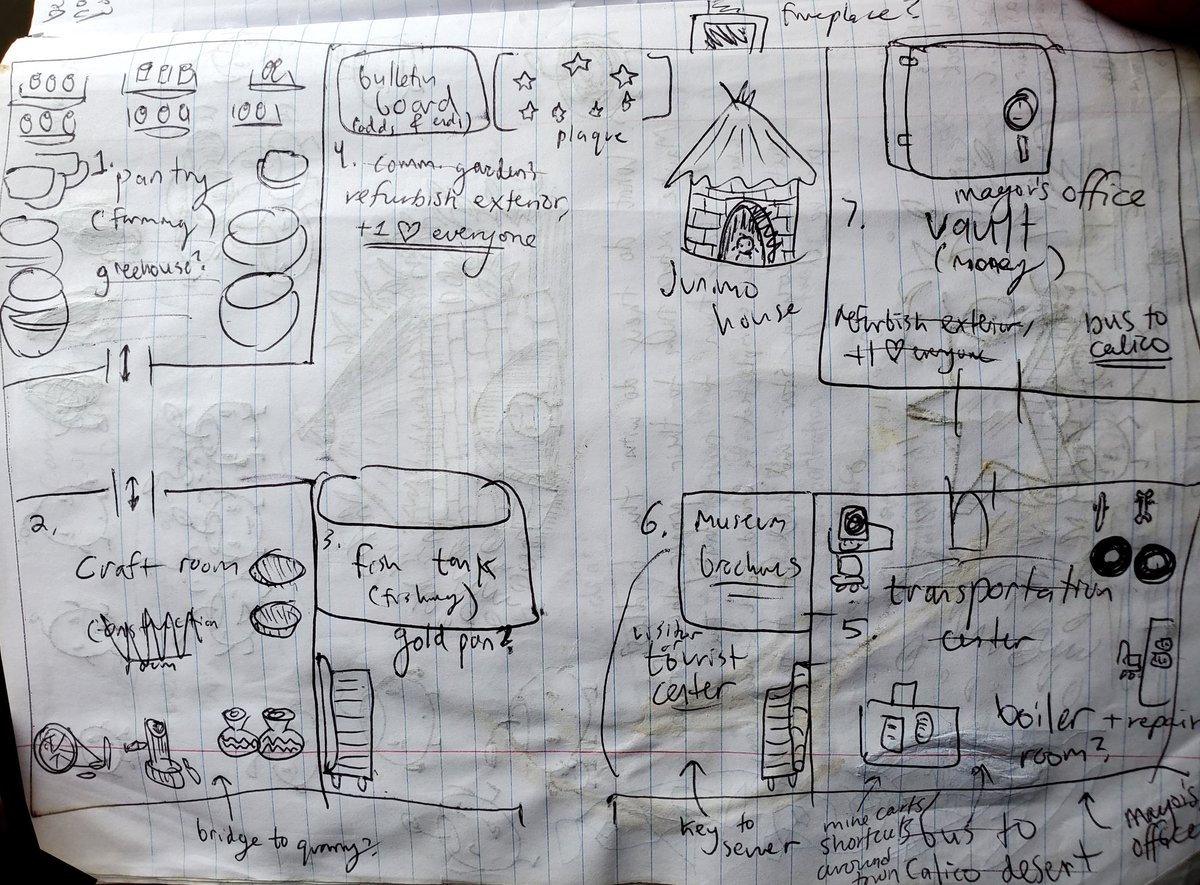 fireplace?
bulletin
board
(odds & ends)
plaque
1. pantry
(farming)
greenhouse?
4. comm. gardens
refurbish exterior,
+1 ♡ everyone
Junimo
house
mayor's office
7. vault
(money)
refurbish exterior,
+1 ♡ everyone
bus to
calico
2.
Craft room
construction
room
bridge to quarry?
3. fish tank
(fishing)
gold pan?
6. museum
brochures
visitor
tourist
center
key to
sewer
transportation
5. center
boiler + repair
room?
mine carts/
shortcuts
around
town
bus to
Calico desert
mayor's
office